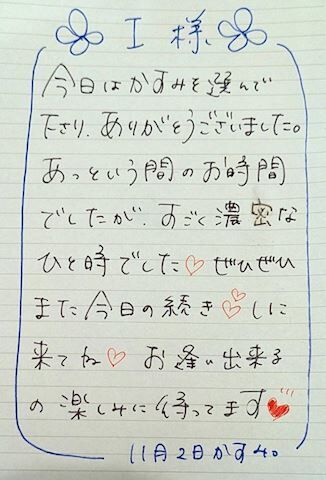 I 様
今日はかすみを選んで
下さり、ありがとうございました。
あっという間のお時間
でしたが、すごく濃密な
ひと時でした♡ ぜひぜひ
また今日の続き♡しに
来てね♡ お逢い出来る
の楽しみに待ってます♥
11月2日かすみ。